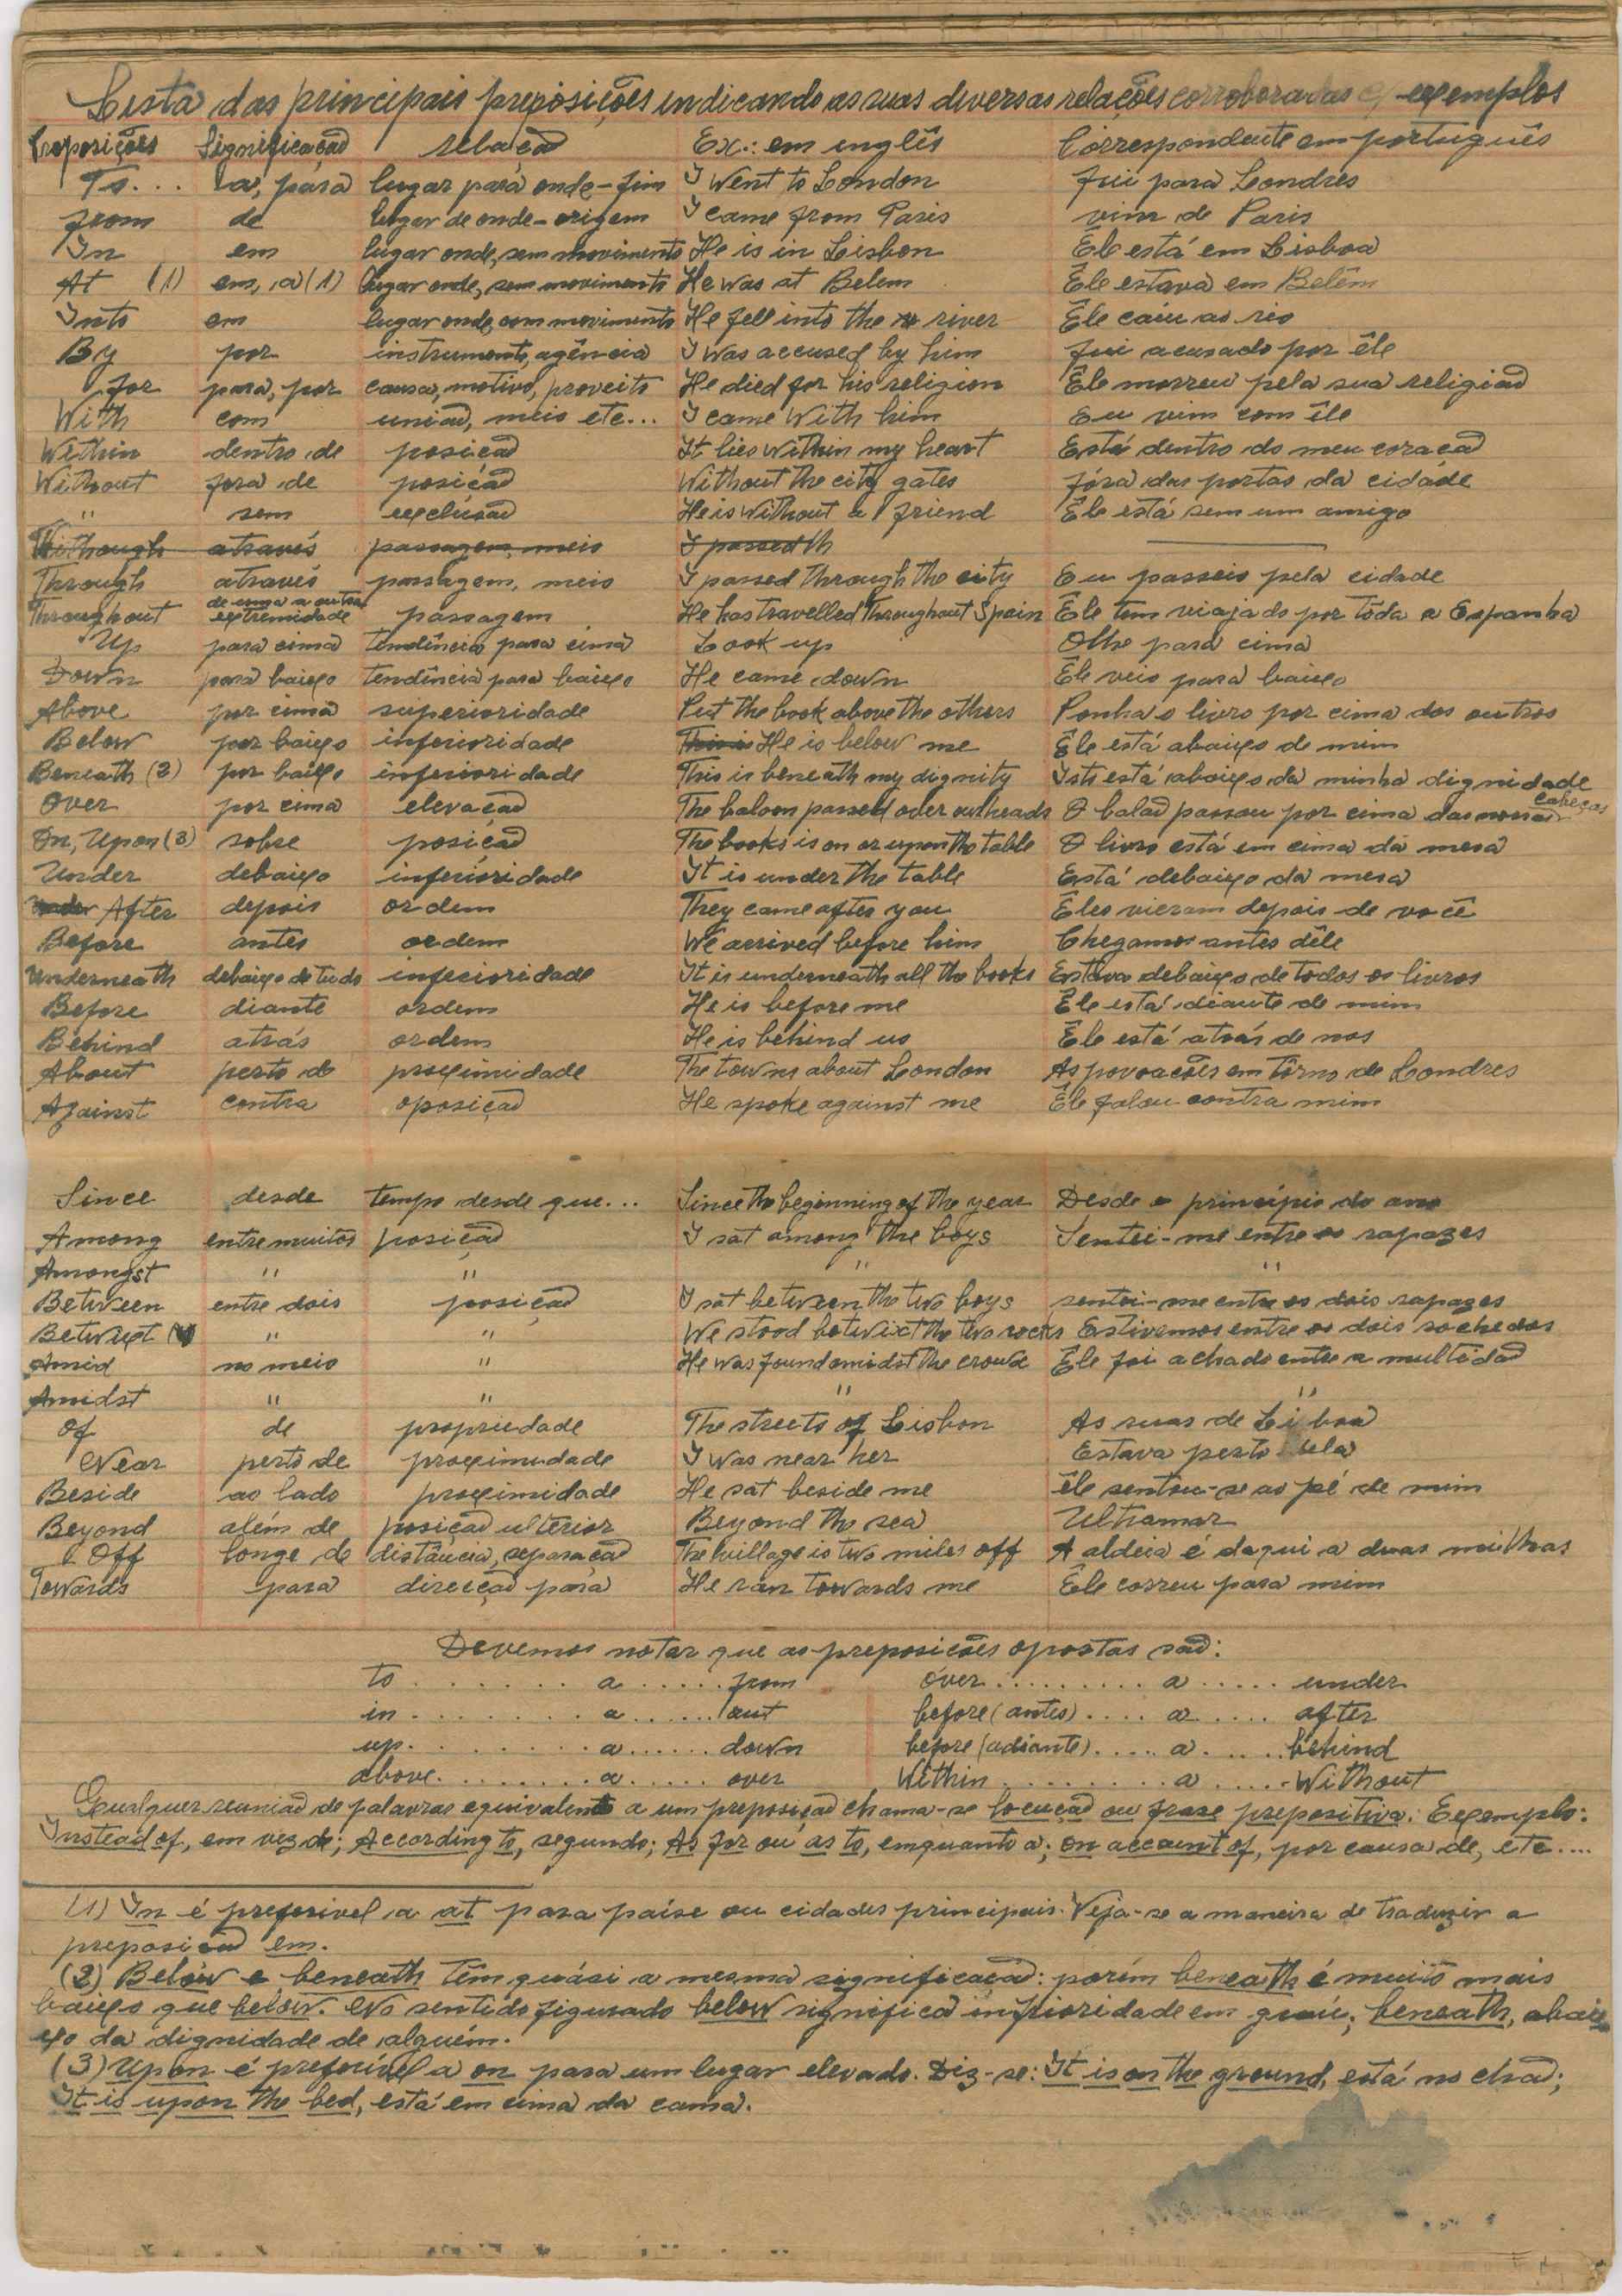 Lista das principais preposições indicando as suas diversas relações corroboradas c/ exemplos
Preposições Significação relação Ex.: em inglês Correspondente em português
To... a, para lugar para onde - fim I went to London fui para Londres
from de lugar de onde - origem I came from Paris vim de Paris
In em lugar onde, sem movimento He is in Lisbon Êle está em Lisboa
At (1) em, a (1) lugar onde, sem movimento He was at Belem Êle estava em Belêm
Into em lugar onde, com movimento He fell into the river Êle caíu ao rio
By por instrumento, agência I was accused by him fui acusado por êle
for para, por causa, motivo, proveito He died for his religion Êle morreu pela sua religião
With com união, meio etc... I came with him Eu vim com êle
Within dentro de posição It lies within my heart Está dentro do meu coração
Without fora de posição Without the city gates fóra das portas da cidade
" sem exclusão He is without a friend Êle está sem um amigo
Withough através passagem, meio I passed th
Through através passagem, meio I passed through the city Eu passeio pela cidade
Throughout de uma a outra extremidade passagem He has travelled throughout Spain Êle tem viajado por tôda a Espanha
Up para cima tendência para cima Look up Olhe para cima
Down para baixo tendência para baixo He came down Êle veio para baixo
Above por cima superioridade Put the book above the others Ponha o livro por cima dos outros
Below por baixo inferioridade This is He is below me Êle está abaixo de mim
Beneath (2) por baixo inferioridade This is beneath my dignity Isto está abaixo da minha dignidade
Over por cima elevação The baloon passed oder our heads O balão passou por cima das nossas cabeças
On, Upon (3) sobre posição The books is on or upon the table O livro está em cima da mesa
Under debaixo inferioridade It is under the table Está debaixo da mesa
Under After depois ordem They came after you Êles vieram depois de você
Before antes ordem We arrived before him Chegamos antes dêle
Underneath debaixo de tudo inferioridade It is underneath all the books Estava debaixo de todos os livros
Before diante ordem He is before me Êle está diante de mim
Behind atrás ordem He is behind us Êle está atrás de nos
About perto de proximidade The towns about London As povoações em tôrno de Londres
Against contra oposição He spoke against me Êle falou contra mim
Since desde tempo desde que... Since the beginning of the year Desde o princípio do ano
Among entre muitos posição I sat among the boys Sentei-me entre os rapazes
Amongst " " " "
Between entre dois posição I sat between the two boys sentei-me entre os dois rapazes
Betwixt " " We stood betwixt the two rocks Estivemos entre os dois rochedos
Amid no meio " He was found amidst the crowd Êle foi achado entre a multidão
Amidst " " " "
Of de propriedade The streets of Lisbon As ruas de Lisboa
Near perto de proximidade I was near her Estava perto dela
Beside ao lado proximidade He sat beside me êle sentou-se ao pé de mim
Beyond além de posição ulterior Beyond the sea Ultramar
Off longe de distância, separação The village is two miles off A aldeia é daqui a duas milhas
Towards para direcção para He ran towards me Êle correu para mim
Devemos notar que as preposições opostas são:
to . . . . . . . a . . . . . . from over . . . . . . . . . a . . . . . under
in . . . . . . . a . . . . . . out before (antes) . . . . a . . . . . after
up . . . . . . . a . . . . . . down before (adiante) . . . . a . . . . . behind
above . . . . . . . a . . . . . . over Within . . . . . . . . a . . . . . Without
Qualquer reunião de palavras equivalente a um preposição chama-se locução ou frase prepositiva: Exemplo:
Instead of, em vez de; According to, segundo; As for ou as to, emquanto a; on account of, por causa de, etc....
(1) In é preferivel a at para paíse ou cidades principais. Veja-se a maneira de traduzir a
preposição em.
(2) Below e beneath têm quási a mesma significação: porím beneath é muito mais
baixo que below. No sentido figurado below significa inferioridade em grau; beneath, abai-
xo da dignidade de alguém.
(3) Upon é preferível a on para um lugar elevado. Diz-se: It is on the ground, está no chão;
It is upon the bed, está em cima da cama.